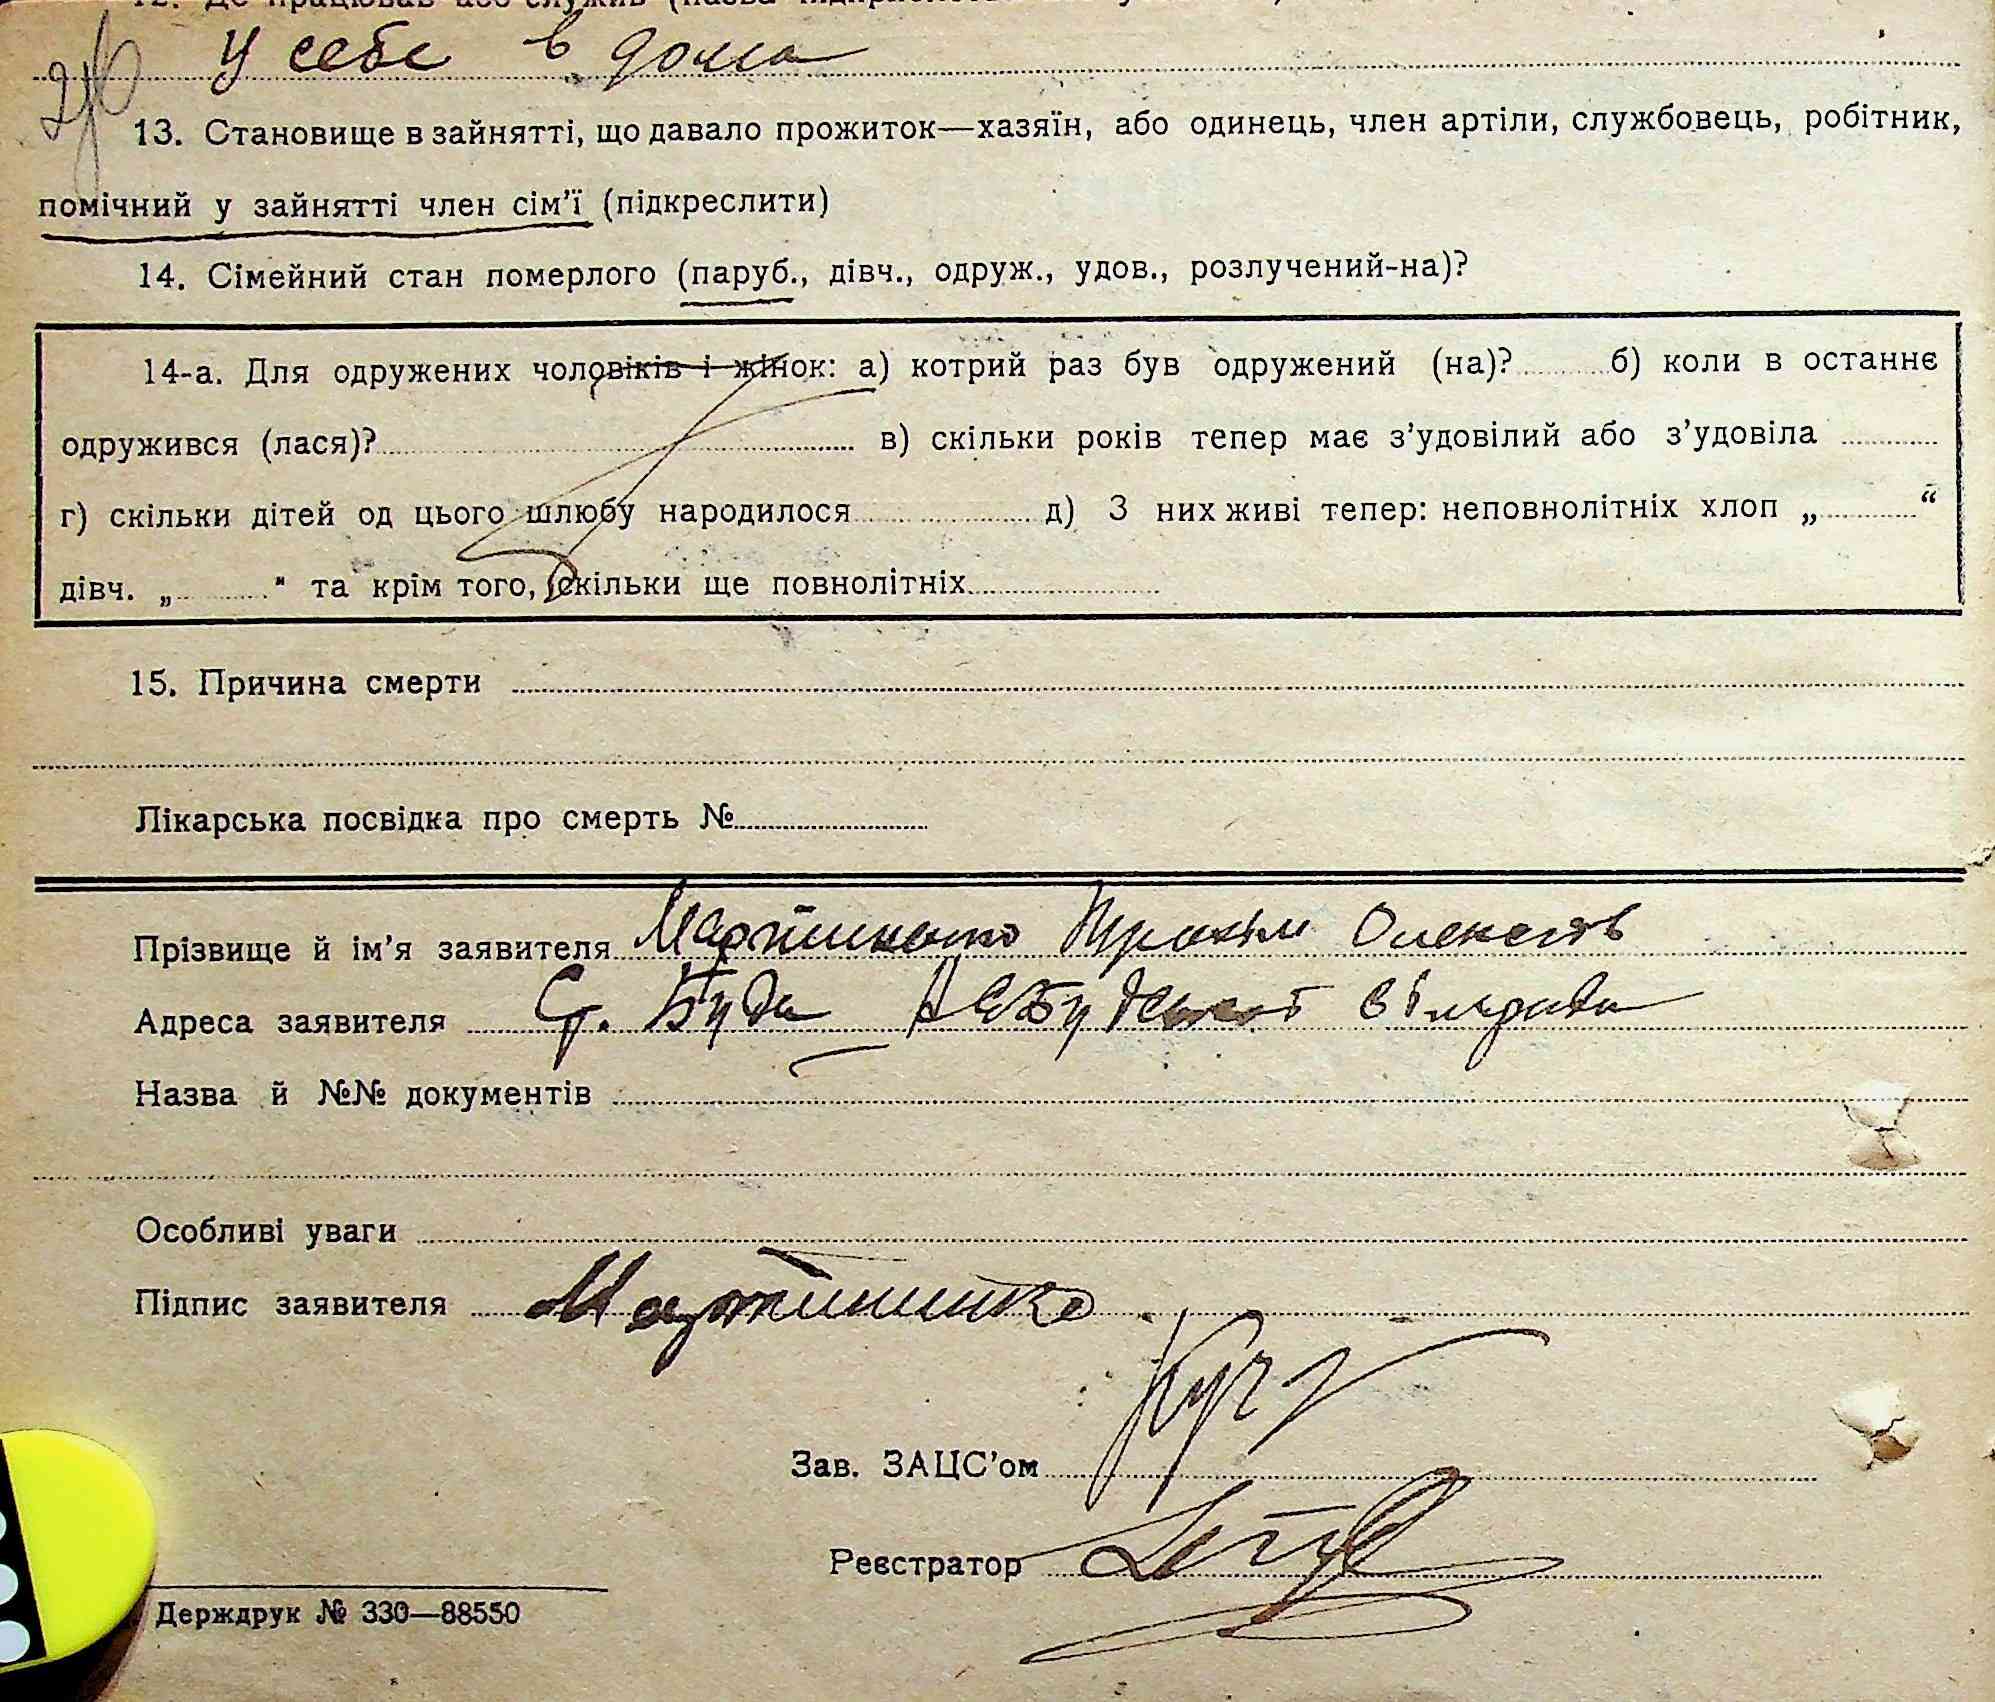 у себе в дома
13. Становище в зайнятті, що давало прожиток—хазяїн, або одинець, член артіли, службовець, робітник,
помічний у зайнятті член сім'ї (підкреслити)
14. Сімейний стан померлого (паруб., дівч., одруж., удов., розлучений-на)?
14-а. Для одружених чоловіків і жінок: а) котрий раз був одружений (на)? б) коли в останнє
одружився (лася)? в) скільки років тепер має з'удовілий або з'удовіла
г) скільки дітей од цього шлюбу народилося д) З них живі тепер: неповнолітніх хлоп „ “
дівч. „ “ та крім того, скільки ще повнолітніх
15. Причина смерти
Лікарська посвідка про смерть №
Прізвище й ім'я заявителя Мартиненко
Адреса заявителя Ст. Буда
Назва й №№ документів
Особливі уваги
Підпис заявителя Мартиненко
Зав. ЗАЦС'ом
Реєстратор
Держдрук № 330—88550